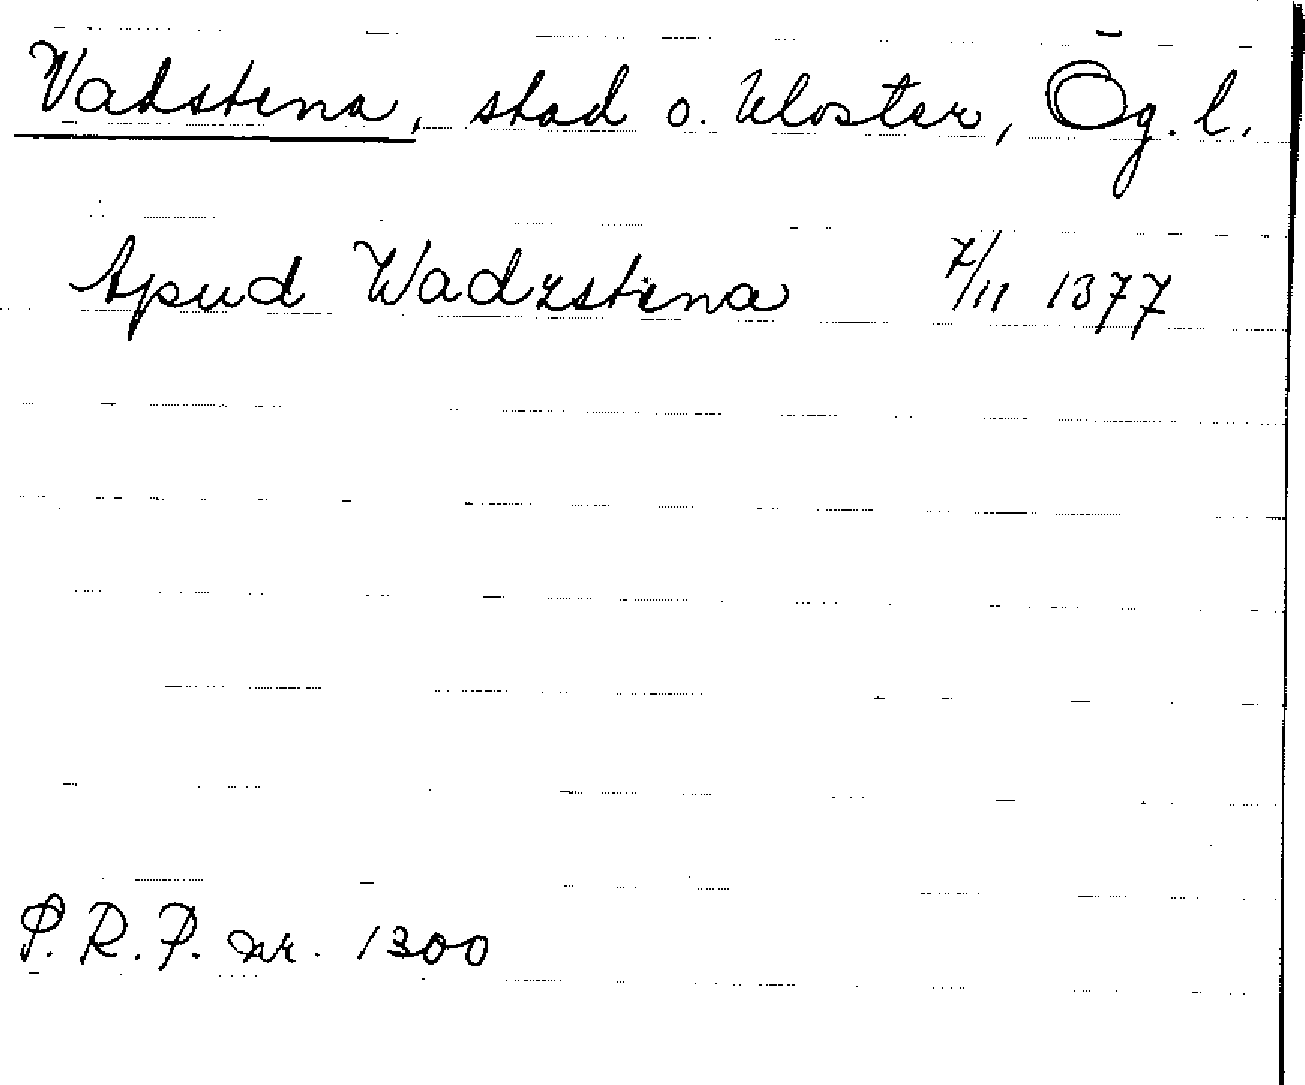 Vadstena, stad o. kloster, Ög. l.
Apud Wadzstena 7/11 1377
P. R. P. nr. 1300